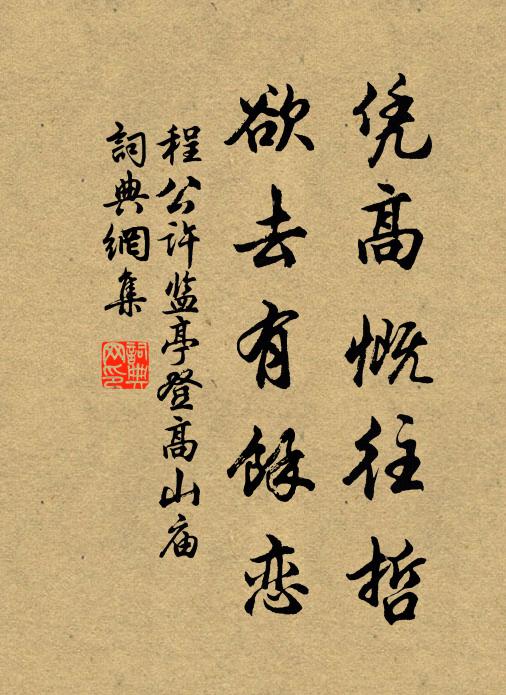 凭高慨往哲
欲去有馀恋
程公许监亭登高山庙
詞典網集
詞典網印